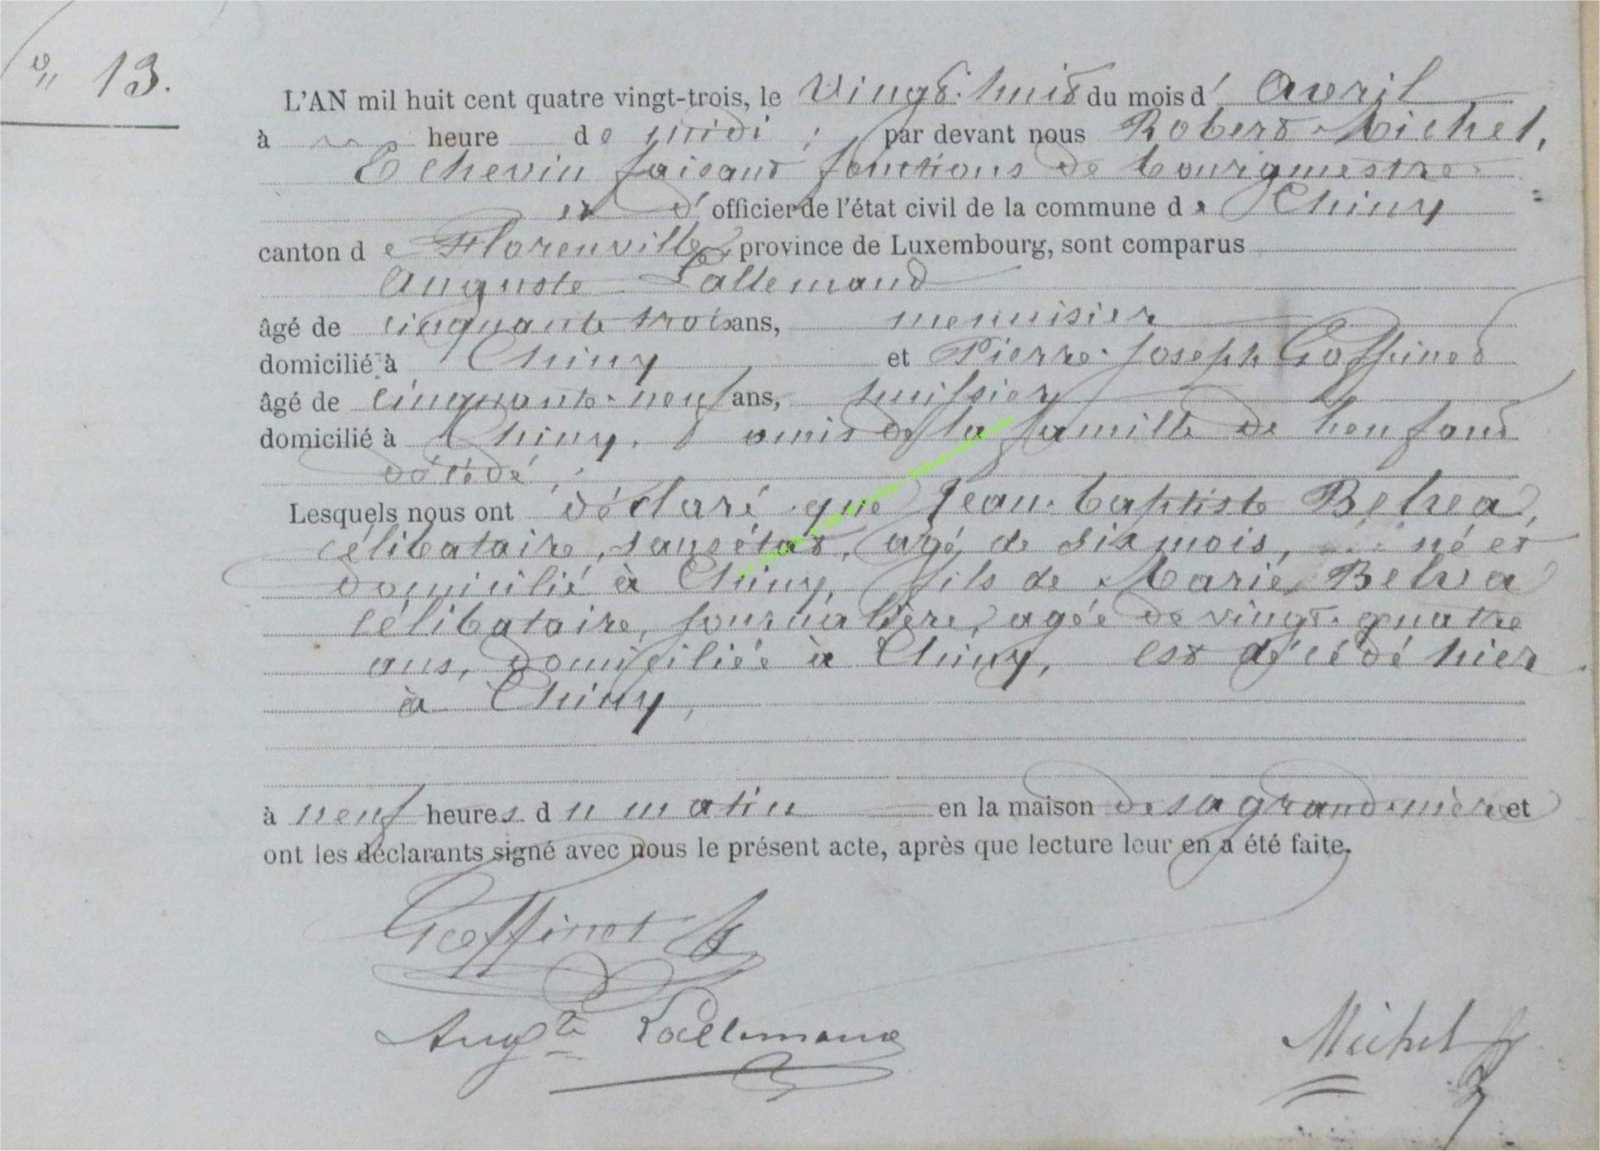 N° 13.
L'AN mil huit cent quatre vingt-trois, le Vingt-huit du mois d'Avril
à heure de midi, par devant nous Robert Michel,
Echevin faisant fonctions de bourgmestre
et d'officier de l'état civil de la commune de Chiny
canton de Florenville, province de Luxembourg, sont comparus
Auguste Lallemand
âgé de cinquante trois ans, menuisier
domicilié à Chiny et Pierre-Joseph Goffinet
âgé de cinquante-neuf ans, huissier
domicilié à Chiny, amis de la famille de l'enfant
décédé,
Lesquels nous ont déclaré que Jean-baptiste
célibataire, sans état, agé de six mois, né et
domicilié à Chiny, fils de Marie
célibataire, journalière, agée de vingt-quatre
ans, domiciliée à Chiny, est décédé hier
à Chiny,
à neuf heures du matin en la maison de sa grand-mère et
ont les déclarants signé avec nous le présent acte, après que lecture leur en a été faite.
Goffinet
Augte Lallemand
Michel